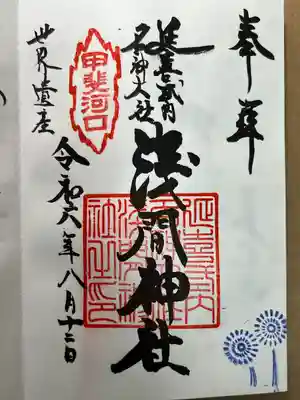 奉拝
延喜式内
名神大社
浅間神社
甲斐河口
世界遺産
令和六年八月十二日